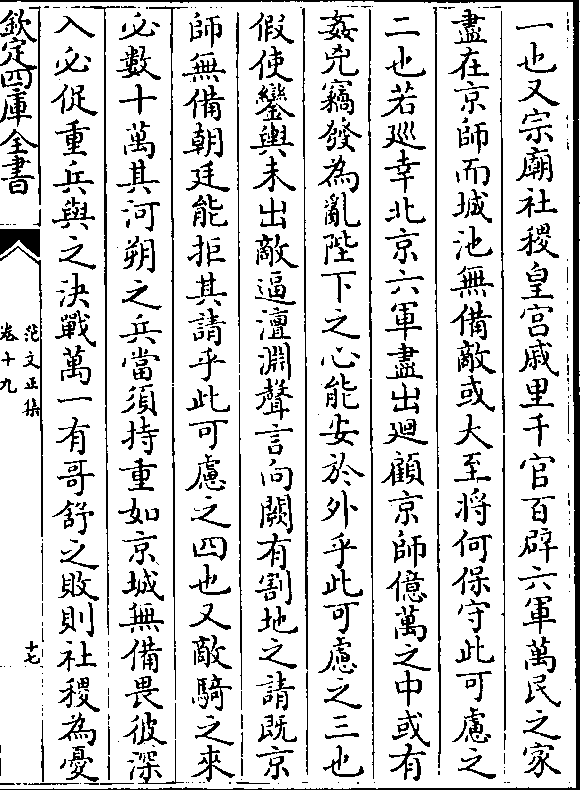 一也又宗廟社稷皇宮戚里千官百辟六軍萬民之家
盡在京師而城池無備敵或大至將何保守此可慮之
二也若廵幸北京六軍盡出廻顧京師億萬之中或有
姦兇竊發為亂陛下之心能安於外乎此可慮之三也
假使鑾輿未出敵逼澶淵聲言向闕有割地之請既京
師無備朝廷能拒其請乎此可慮之四也又敵騎之來
必數十萬其河朔之兵當須持重如京城無備畏彼深
入必促重兵與之決戰萬一有哥舒之敗則社稷為憂
欽定四庫全書
范文正集
卷十九
十七